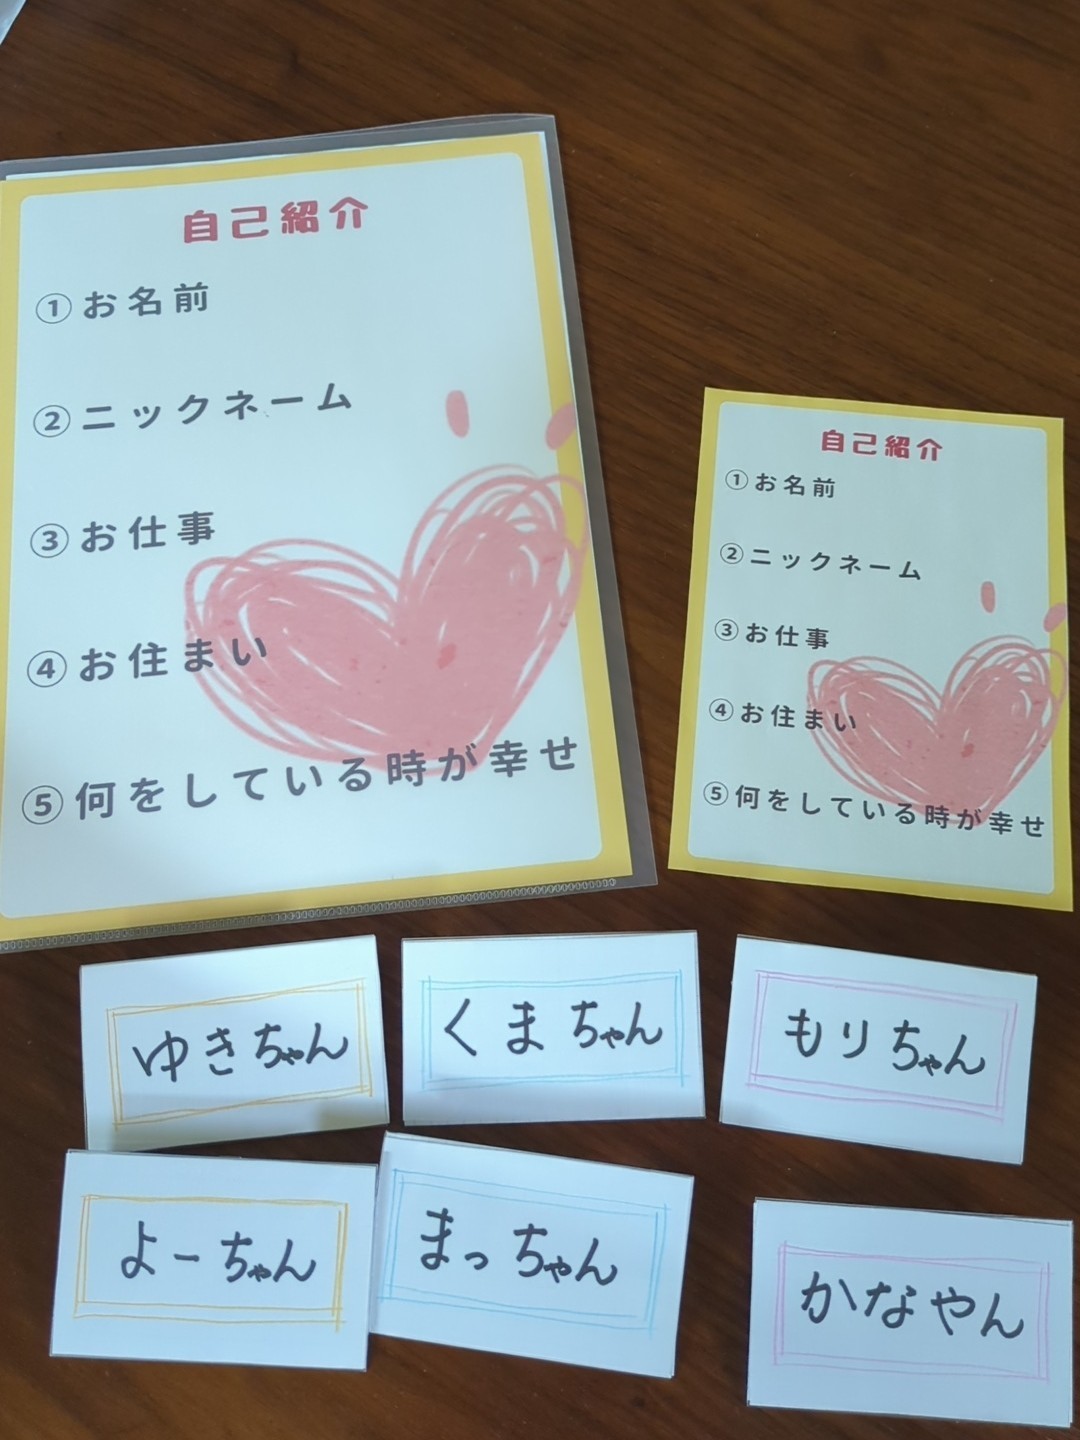 自己紹介
①お名前
②ニックネーム
③お仕事
④お住まい
⑤何をしている時が幸せ
自己紹介
①お名前
②ニックネーム
③お仕事
④お住まい
⑤何をしている時が幸せ
ゆきちゃん
くまちゃん
もりちゃん
よーちゃん
まっちゃん
かなやん